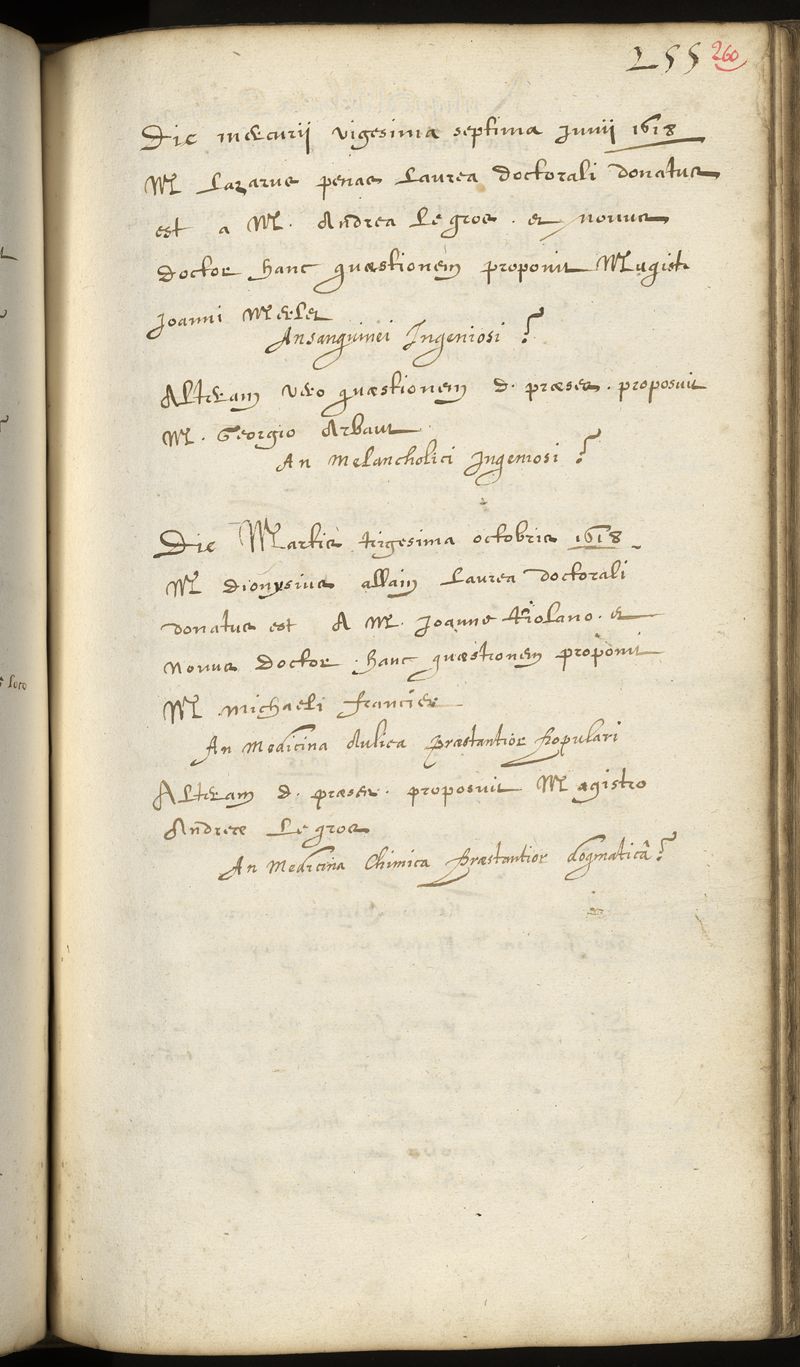 255 260
Die mercurij vigesima septima Junij 1618
M. Lazarus penas Laurea doctorali donatus
est a M. Andrea Le gros . et nouus
doctor hanc quæstionem proponit Magist
Joanni Merlet
An sanguinei Ingeniosi ?
Alteram vero quæstionem d. præses . proposuit
M. Georgio Arbaut
An Melancholici Ingeniosi ?
Die Martis trigesima octobris 1618
M. dionysius allain Laurea doctorali
donatus est A M. Joanne Riolano . et
nouus doctor . hanc quæstionem proponit
M. Michaeli francier
An Medicina Aulica Præstantior Populari
Alteram d. præses . proposuit Magistro
Andreæ Le gros
An Medicina Chimica Præstantior dogmaticâ ?